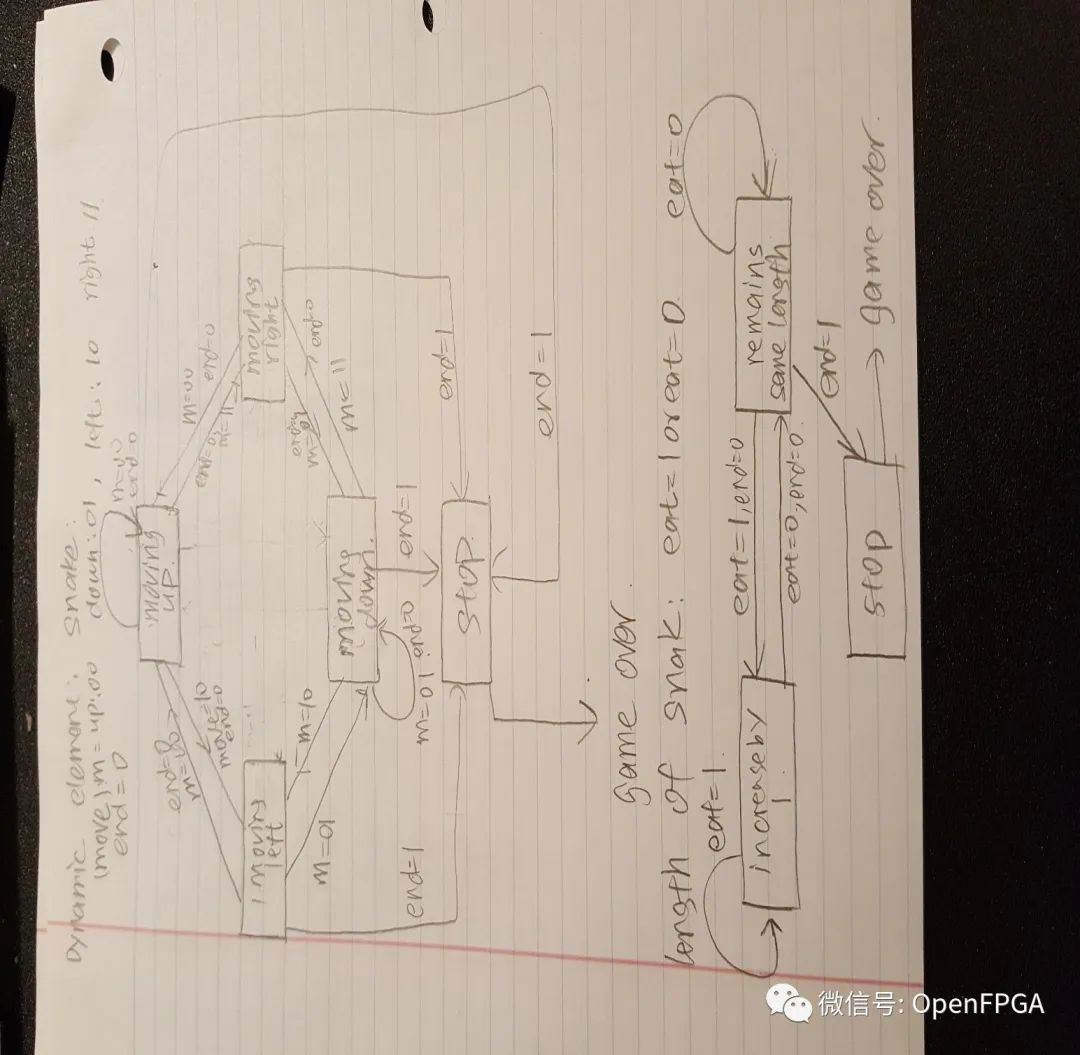 Dynamic element: Snake:
(move) m = up:00 down:01, left:10 right 11
end=0
m=00
end=0
moving
up.
end=0
m=00
move=10
end=0
m=00
end=0
end=0,
m=11
moving
left
moving
right
m=10
m=01
end=0
m=11
moving
down.
m=01, end=0
end=1
end=1
end=1
stop.
end=1
game over
length of snak: eat=1 or eat=0
eat=1.
eat=0
increase by
1
eat=1, end=0
eat=0, end=0.
remains
same length
end=1
stop
game over.
微信号: OpenFPGA